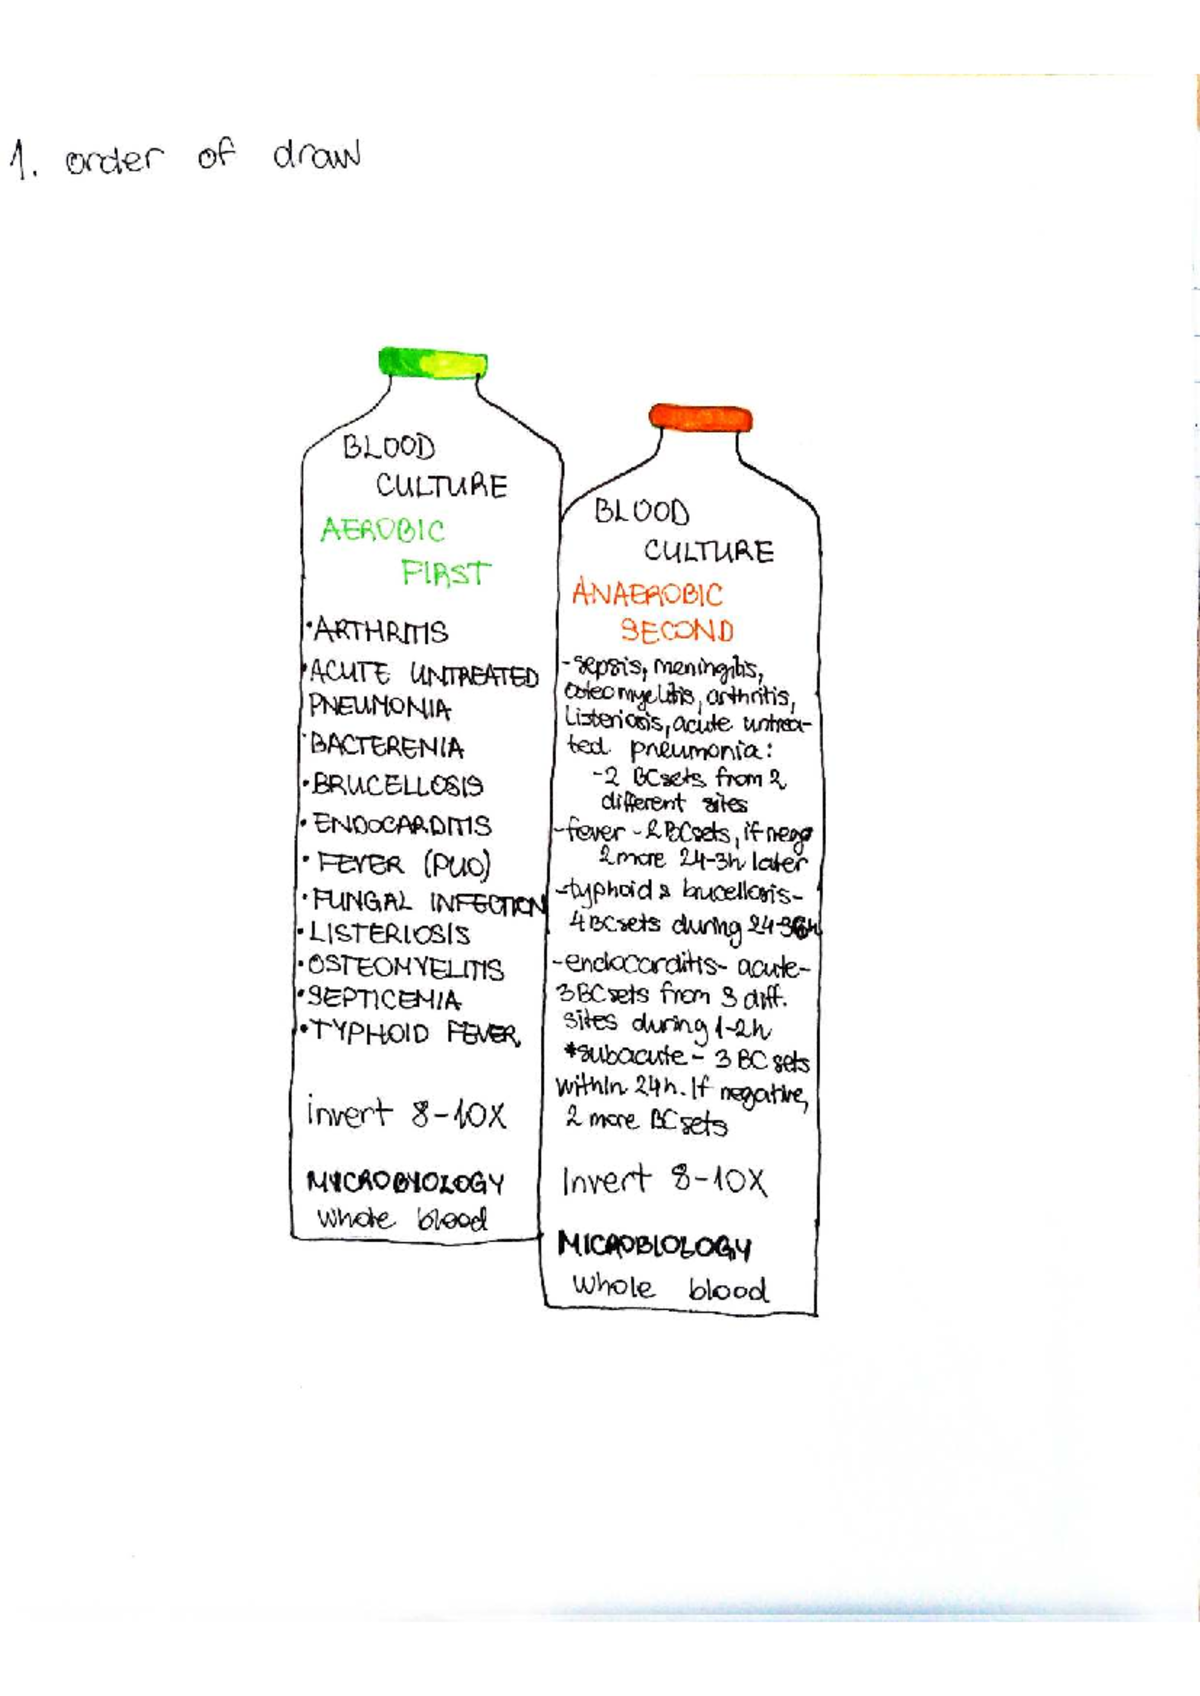 1. order of draw
BLOOD
CULTURE
AEROBIC
FIRST
•ARTHRITIS
•ACUTE UNTREATED
PNEUMONIA
•BACTERENIA
•BRUCELLOSIS
•ENDOCARDITIS
•FEVER (PUO)
•FUNGAL INFECTION
•LISTERIOSIS
•OSTEOMYELITIS
•SEPTICEMIA
•TYPHOID FEVER,
invert 8-10X
MYCROBYOLOGY
whole blood
BLOOD
CULTURE
ANAEROBIC
SECOND
-sepsis, meningitis,
osteomyelitis, arthritis,
Listeriosis, acute untrea-
ted pneumonia:
-2 BC sets from 2
different sites
-fever - 2 BC sets, if nega
2 more 24-3h later
-typhoid & bucellosis-
4 BC sets during 24-36h
-endocarditis- acute-
3 BC sets from 3 diff.
sites during 1-2h
*subacute - 3 BC sets
within 24h. If negative,
2 more BC sets
Invert 8-10X
MICROBIOLOGY
whole blood